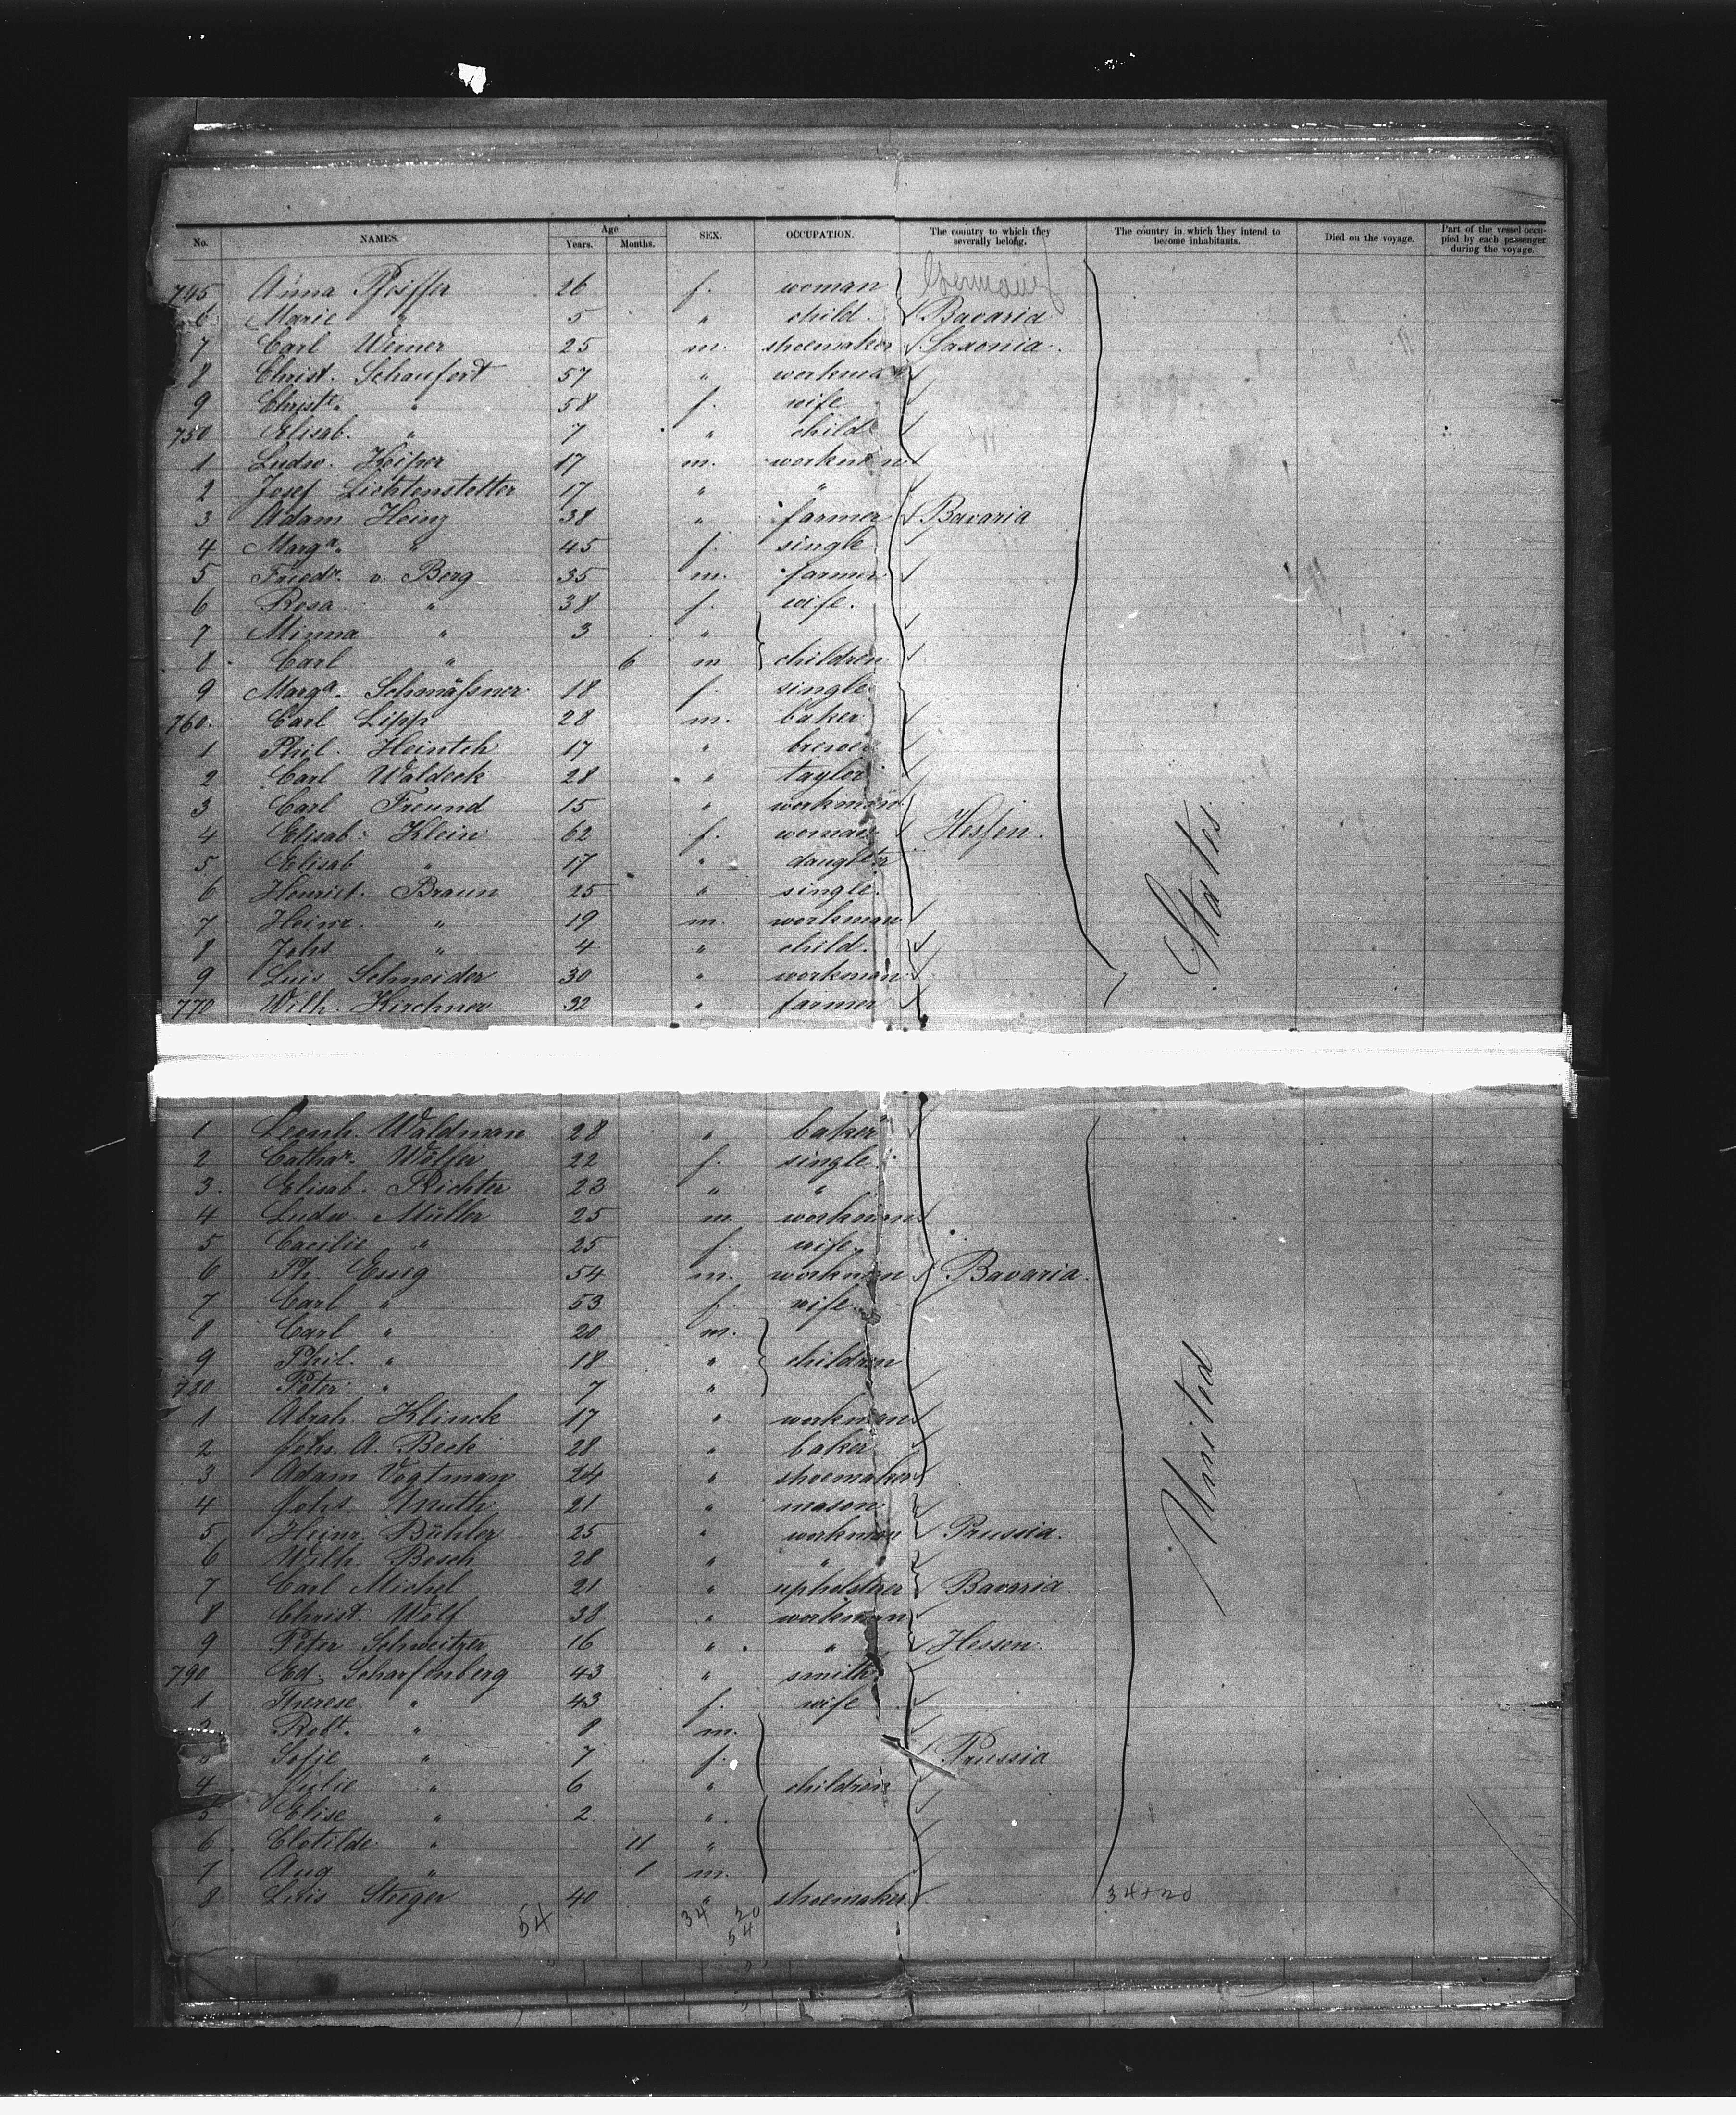 No. NAMES. Age Years. Months. SEX. OCCUPATION. The country to which they severally belong. The country in which they intend to become inhabitants. Died on the voyage. Part of the vessel occupied by each passenger during the voyage.
745 Anna Pfeiffer 26 f. woman Germany
6 Marie " 5 " child Bavaria
7 Carl Werner 25 m. shoemaker Saxonia.
8 Christ. Schaufert 57 " workman
9 Christe. " 58 f. wife
750 Elisab. " 7 " child
1 Ludw. Keiper 17 m. workman
2 Josef Lichtenstetter 17 " "
3 Adam Heinz 38 " farmer Bavaria
4 Marga. " 45 f. single
5 Friedr. v. Berg 35 m. farmer
6 Rosa " 38 f. wife.
7 Minna " 3 "
8 Carl " 6 m children
9 Marga. Schmäfsner 18 f. single
760. Carl Lipp 28 m. baker
1 Phil. Heintch 17 " brewer
2 Carl Waldeck 28 " taylor
3 Carl Freund 15 " workman
4 Elisab. Klein 62 f. woman Hessen.
5 Elisab " 17 " daughter
6 Henriet. Braun 25 " single.
7 Heinr. " 19 m. workman
8 Johs " 4 " child.
9 Luis Schneider 30 " workman
770 Wilh. Kirchner 32 " farmer
States
1 Leonh. Waldman 28 " baker
2 Cathar. Wölfer 22 f. single
3. Elisab. Richter 23 " "
4 Ludw. Müller 25 m workman
5 Caecilie " 25 f. wife
6 Ph. Essig 54 m. workman Bavaria.
7 Carl " 53 f. wife
8 Carl " 20 m.
9 Phil. " 18 " children
780 Peter " 7 "
1 Abrah. Klinck 17 " workman
2 Johs. A. Beck 28 " baker
3 Adam Vogtman 24 " shoemaker
4 Johs. Knuth 21 " mason
5 Heinr. Bühler 25 " workman Prussia.
6 Wilh. Bosch 28 " "
7 Carl Michel 21 " upholsterer Bavaria.
8 Christ. Wolf 38 " workman
9 Peter Schweitzer 16 " " Hessen.
790 Ed. Scharfenberg 43 " smith
1 Therese " 43 f. wife
2 Robt. " 8 m.
3 Sofie " 7 f. Prussia
4 Julie " 6 " children
5 Elise " 2 "
6 Clotilde " 11 "
7 Aug " 1 m.
8 Luis Steeger 40 " shoemaker.
United
34+20
54 34 20
54